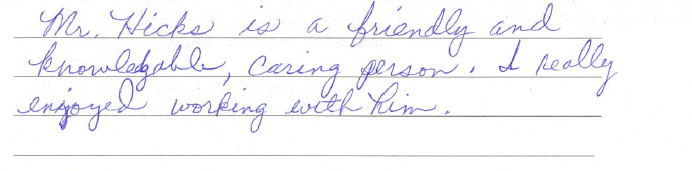 Mr. Hicks is a friendly and
knowledgable, caring person. I really
enjoyed working with him.